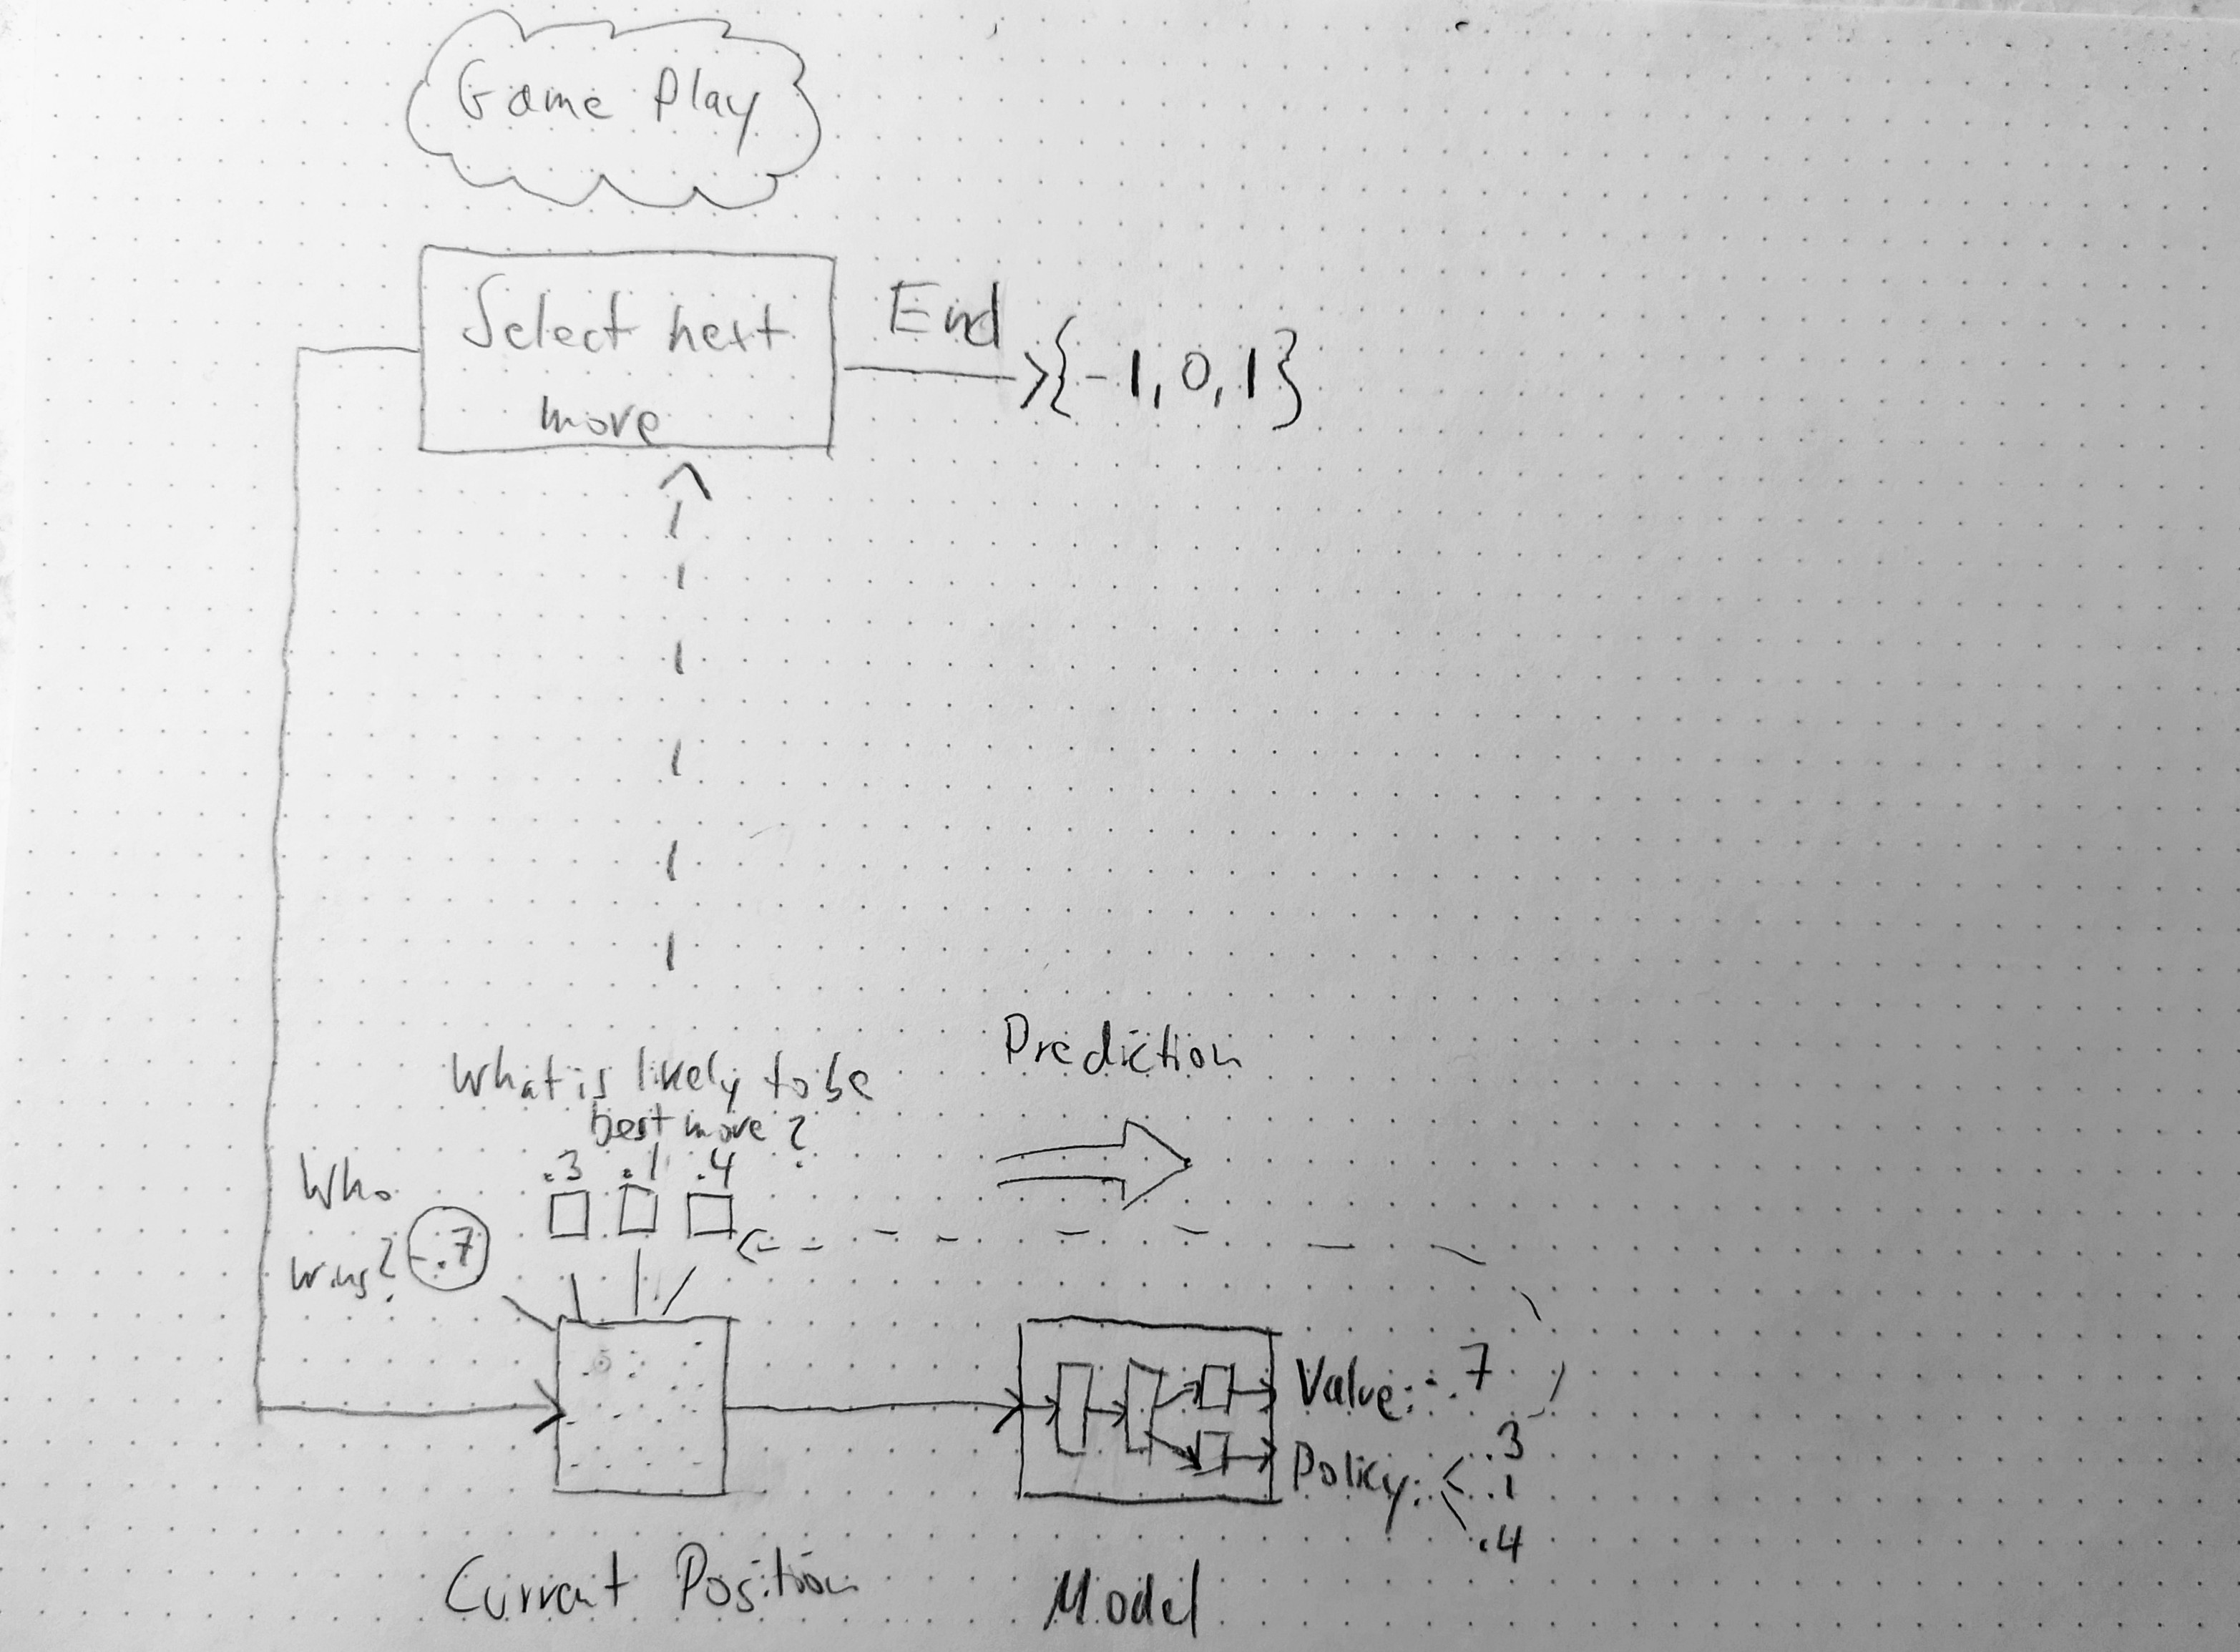 Game Play
Select next
move
End
{-1, 0, 1}
What is likely to be
best move?
Prediction
.3 .1 .4
Who
wins?
-.7
Value: -.7
Policy:
.3
.1
.4
Current Position
Model